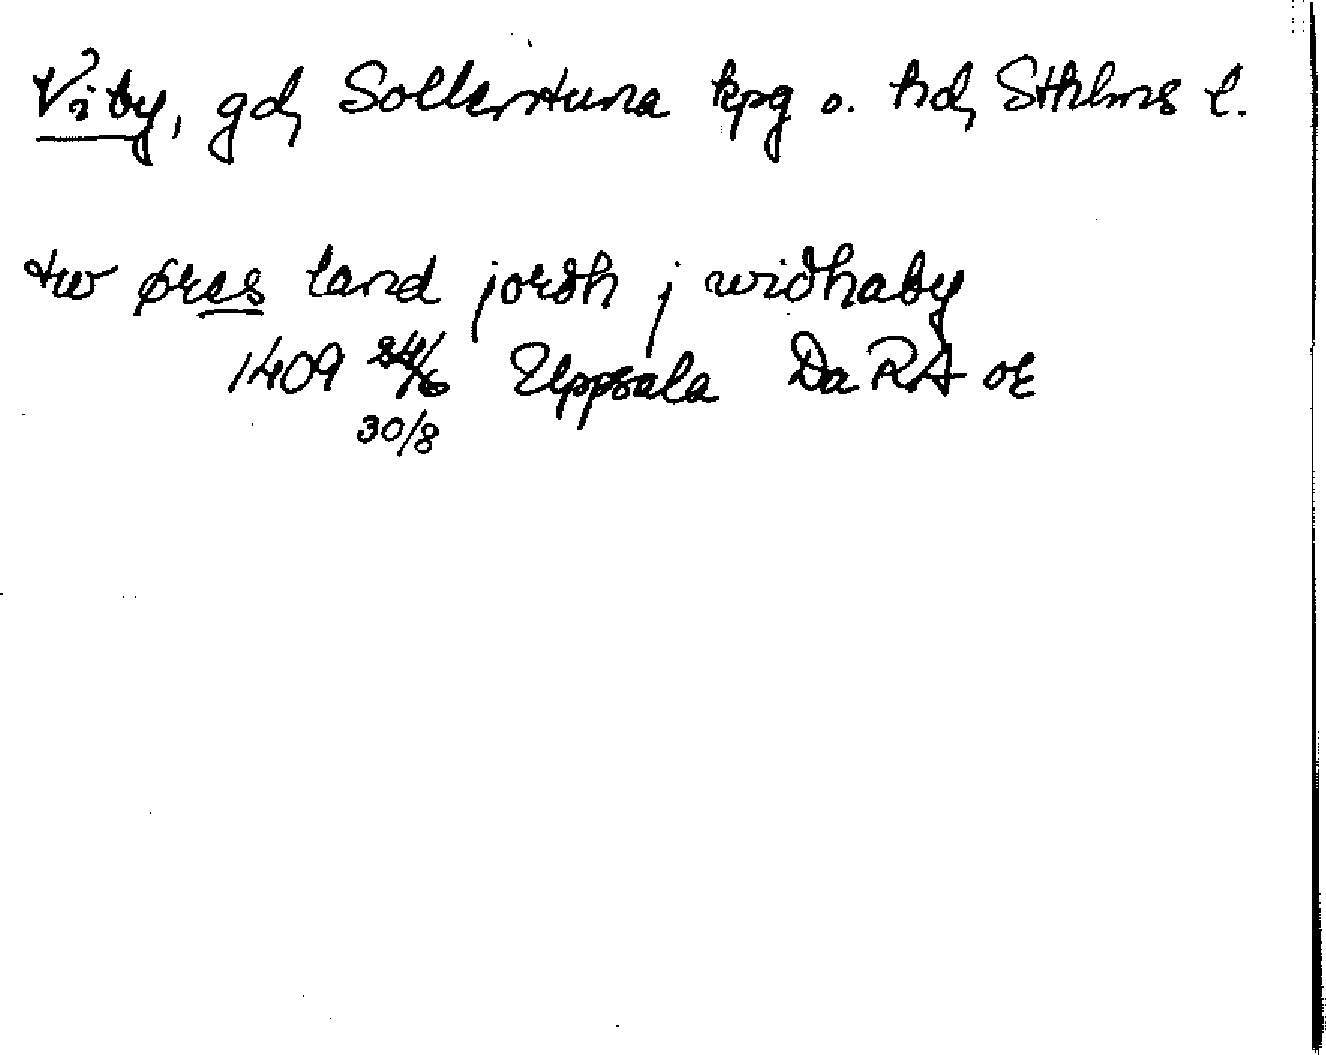 Viby, gd, Sollentuna kpg o. hd, Sthlms l.
tw øres land jordh j widhaby
1409 24/6 Uppsala Da RA or
30/8